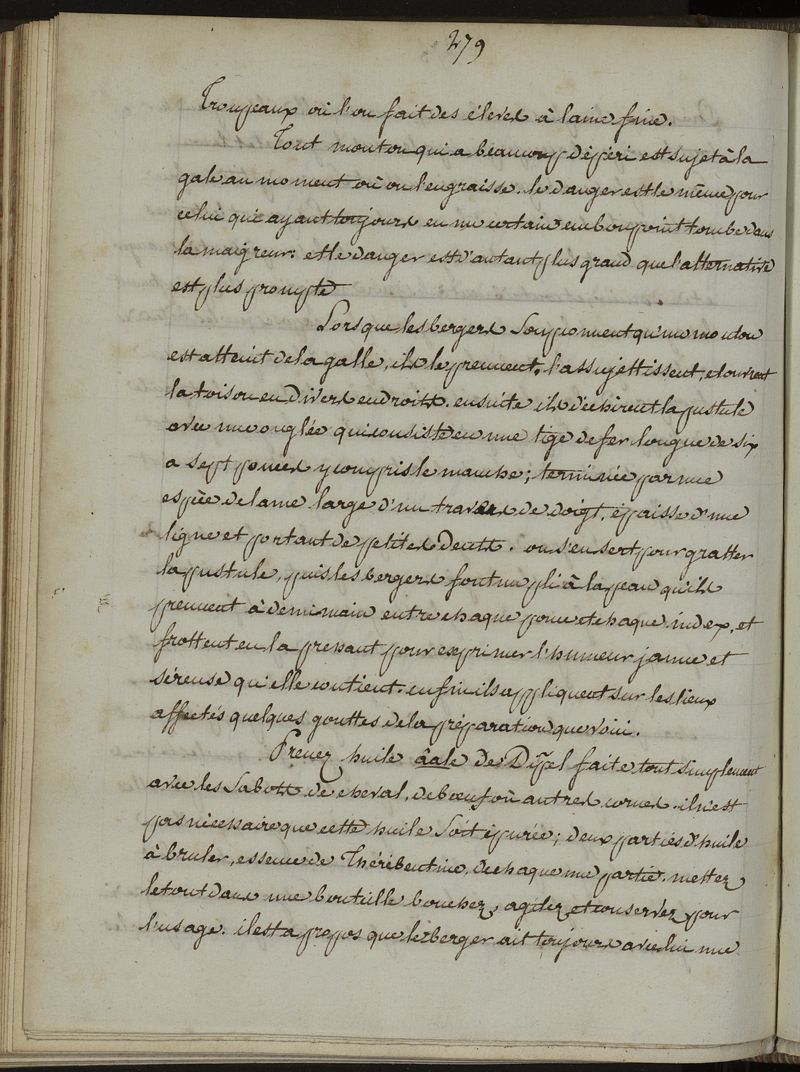 279
Troupeaux où l'on fait des élèves à laine fine.
Tout mouton qui a beaucoup dépéri est sujet à la
gale au moment où on l'engraisse. le danger est le même pour
celui qui ayant toujours eu un certain embonpoint tombe dans
la maigreur: et le danger est d'autant plus grand que l'alternative
est plus prompte
Lorsque les bergers soupçonnent qu'un mouton
est atteint de la galle, ils le prennent, l'assujettissent, et ouvrent
la toison en divers endroits. ensuite ils déchirent la pustule
avec une onglée qui consiste en une tige de fer longue de six
a sept pouces y compris le manche; terminée par une
espèce de lame large d'un travers de doigt, épaisse d'une
ligne et portant de petites dents. on s'en sert pour gratter
la pustule, puis les bergers font un pli à la peau qu'ils
prennent à demi main entre chaque pouce et chaque index, et
frottent en la pressant pour exprimer l'humeur jaune et
séreuse qu'elle contient. enfin ils appliquent sur les lieux
affectés quelques gouttes de la préparation que voici.
Prenez huile âale de Dippel faite tout simplement
avec les Sabots de cheval, de bœuf où autres cornes. il n'est
pas nécessaire que cette huile soit épurée; deux parties d'huile
à bruler, essence de Thérébentine, de chaque une partie. mettez
le tout dans une bouteille bouchez, agitez, et conservez pour
l'usage. il est a propos que le berger ait toujours avec lui une